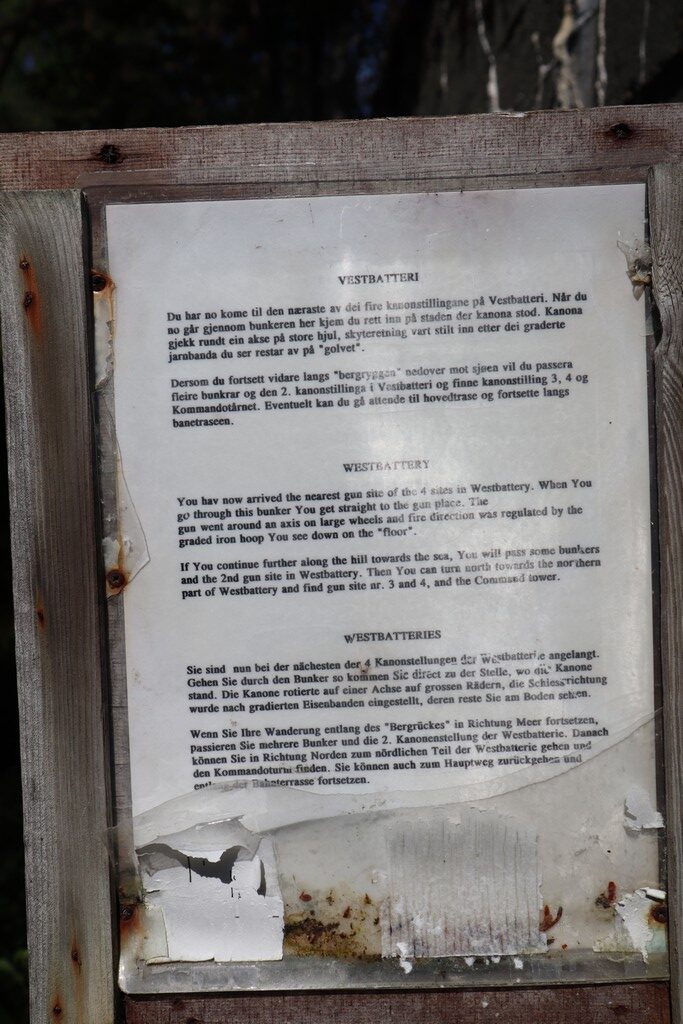 VESTBATTERI
Du har no kome til den næraste av dei fire kanonstillingane på Vestbatteri. Når du
no går gjennom bunkeren her kjem du rett inn på staden der kanona stod. Kanona
gjekk rundt ein akse på store hjul, skyteretning vart stilt inn etter dei graderte
jarnbanda du ser restar av på "golvet".
Dersom du fortsett vidare langs "bergryggen" nedover mot sjøen vil du passera
fleire bunkrar og den 2. kanonstillinga i Vestbatteri og finne kanonstilling 3, 4 og
Kommandotårnet. Eventuelt kan du gå attende til hovedtrase og fortsette langs
banetraseen.
WESTBATTERY
You hav now arrived the nearest gun site of the 4 sites in Westbattery. When You
go through this bunker You get straight to the gun place. The
gun went around an axis on large wheels and fire direction was regulated by the
graded iron hoop You see down on the "floor".
If You continue further along the hill towards the sea, You will pass some bunkers
and the 2nd gun site in Westbattery. Then You can turn north towards the northern
part of Westbattery and find gun site nr. 3 and 4, and the Command tower.
WESTBATTERIES
Sie sind nun bei der nächesten der 4 Kanonstellungen der Westbatterie angelangt.
Gehen Sie durch den Bunker so kommen Sie direct zu der Stelle, wo die Kanone
stand. Die Kanone rotierte auf einer Achse auf grossen Rädern, die Schiessrichtung
wurde nach gradierten Eisenbanden eingestellt, deren reste Sie am Boden sehen.
Wenn Sie Ihre Wanderung entlang des "Bergrückes" in Richtung Meer fortsetzen,
passieren Sie mehrere Bunker und die 2. Kanonenstellung der Westbatterie. Danach
können Sie in Richtung Norden zum nördlichen Teil der Westbatterie gehen und
den Kommandoturm finden. Sie können auch zum Hauptweg zurückgehen und
entlang der Bahnterrasse fortsetzen.